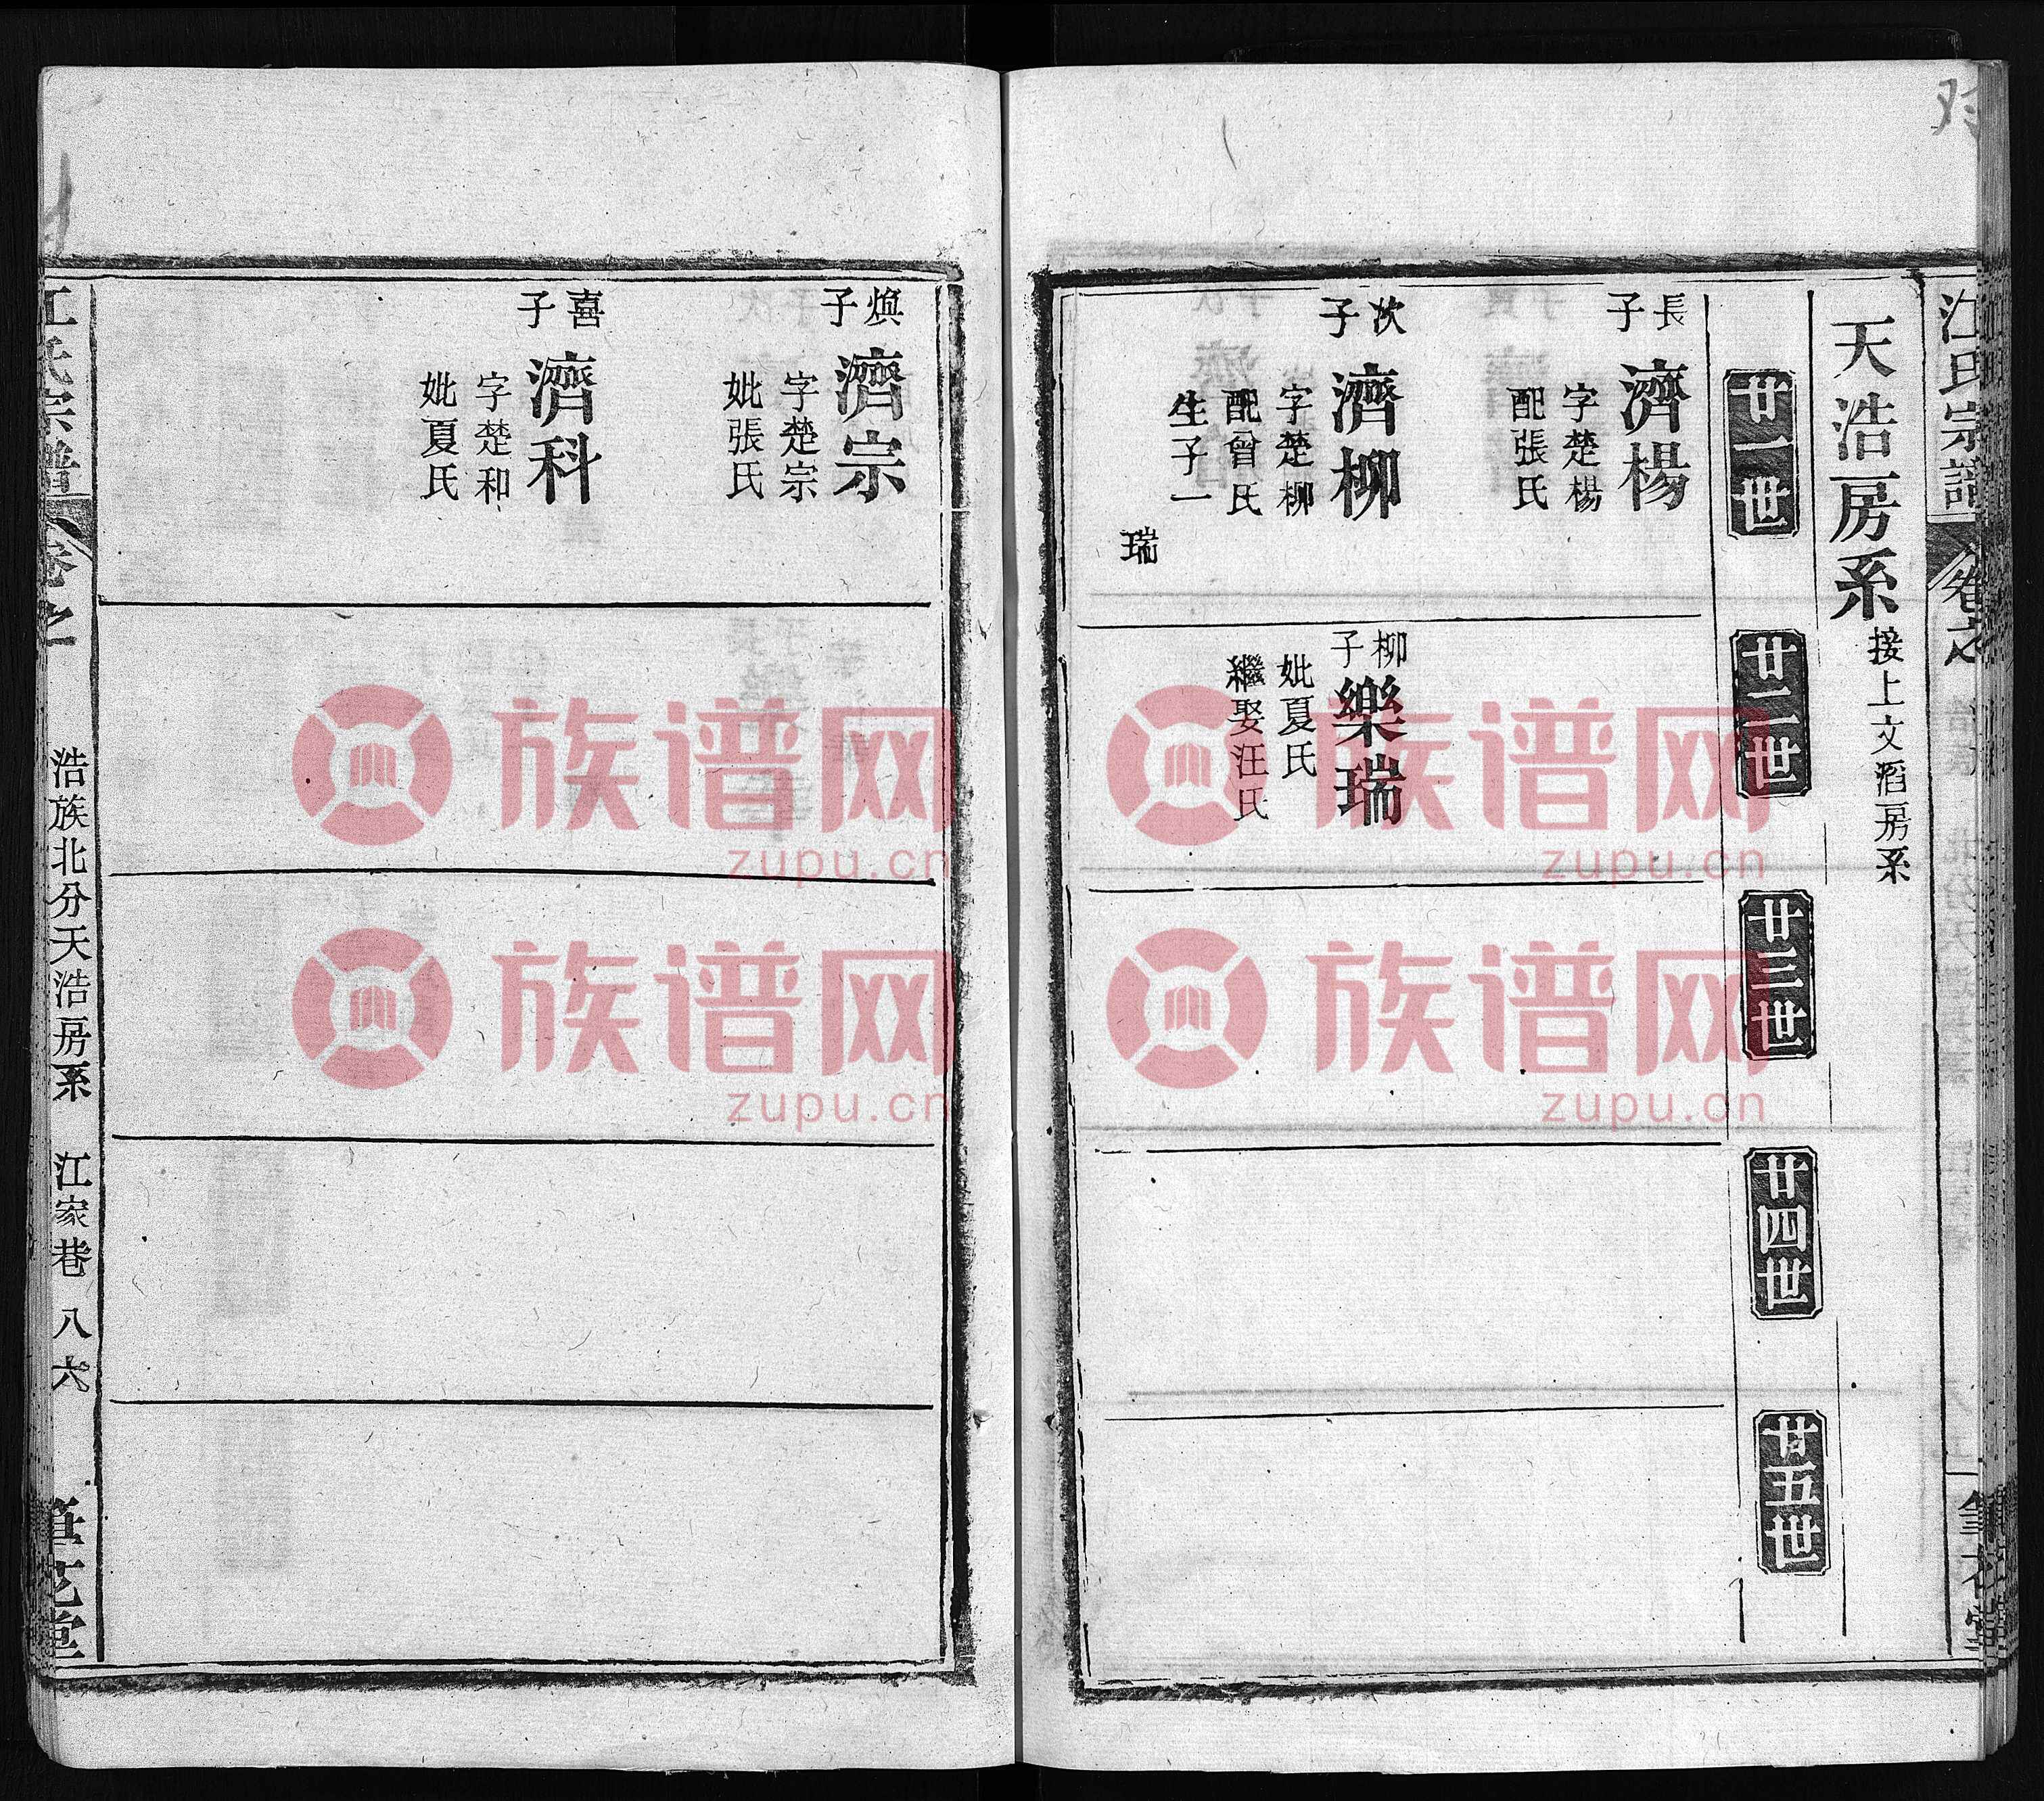 江氏宗譜
卷之
筆花堂
天浩房系
接上文滔房系
廿一世
廿二世
廿三世
廿四世
廿五世
長子
濟楊
字楚楊
配張氏
次子
濟柳
字楚柳
配曾氏
生子一
瑞
柳子
樂瑞
妣夏氏
繼娶汪氏
煥子
濟宗
字楚宗
妣張氏
喜子
濟科
字楚和
妣夏氏
江氏宗譜
卷之
浩族北分天浩房系
江家巷
八六
筆花堂
族谱网
zupu.cn
族谱网
zupu.cn
族谱网
zupu.cn
族谱网
zupu.cn